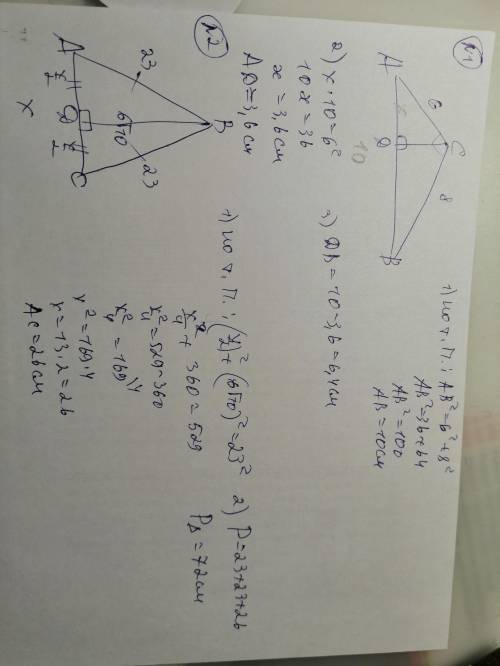 №1
A
6
C
8
D
B
1) по т. П.: AB² = 6² + 8²
AB² = 36 + 64
AB² = 100
AB = 10 см
2) x · 10 = 6²
10x = 36
x = 3,6 см
AD = 3,6 см
10
3) DB = 10 - 3,6 = 6,4 см
№2
A
23
B
6√10
23
D
C
x/2
x/2
x
1) по т. П.: (x/2)² + (6√10)² = 23²
x²/4 + 360 = 529
x²/4 = 529 - 360
x²/4 = 169 \4
x² = 169·4
x = 13 · 2 = 26
AC = 26 см
2) P = 23 + 23 + 26
P△ = 72 см